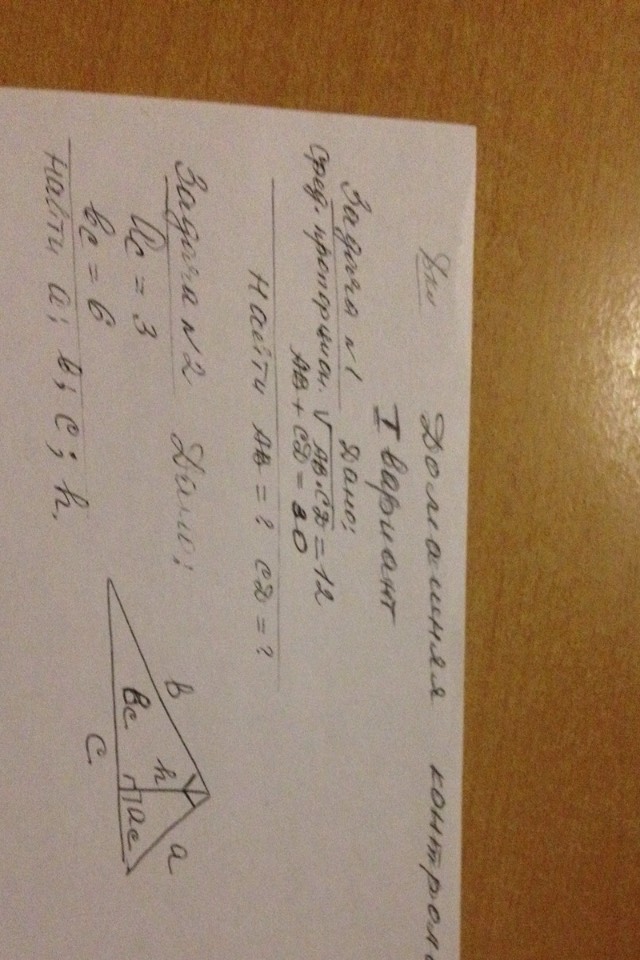 Домашняя контроль
I вариант
Задача №1 Дано:
сред. пропорцион. √AB·CD = 12
AB + CD = 30
Найти AB = ? CD = ?
Задача №2 Дано:
ac = 3
bc = 6
Найти a; b; c; h.
b
a
h
bc
ac
c